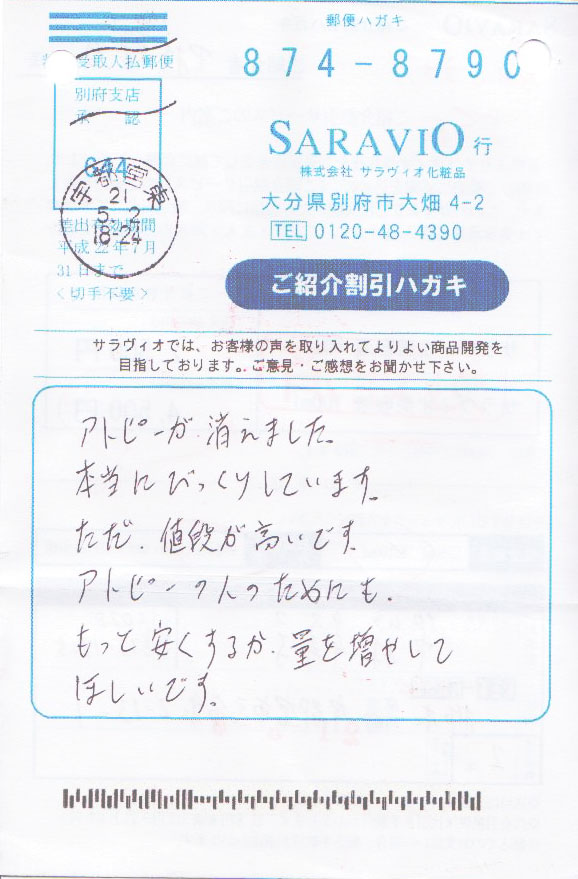 郵便ハガキ
受取人払郵便
874-8790
別府支店
承認
644
SARAVIO 行
株式会社 サラヴィオ化粧品
大分県別府市大畑 4-2
TEL 0120-48-4390
宇都宮東
21
5.2
18-24
差出有効期間
31日まで
<切手不要>
ご紹介割引ハガキ
サラヴィオでは、お客様の声を取り入れてよりよい商品開発を
目指しております。ご意見・ご感想をお聞かせ下さい。
アトピーが、消えました。
本当にびっくりしています。
ただ、値段が高いです。
アトピーの人のためにも、
もっと安くするか、量を増やして
ほしいです。